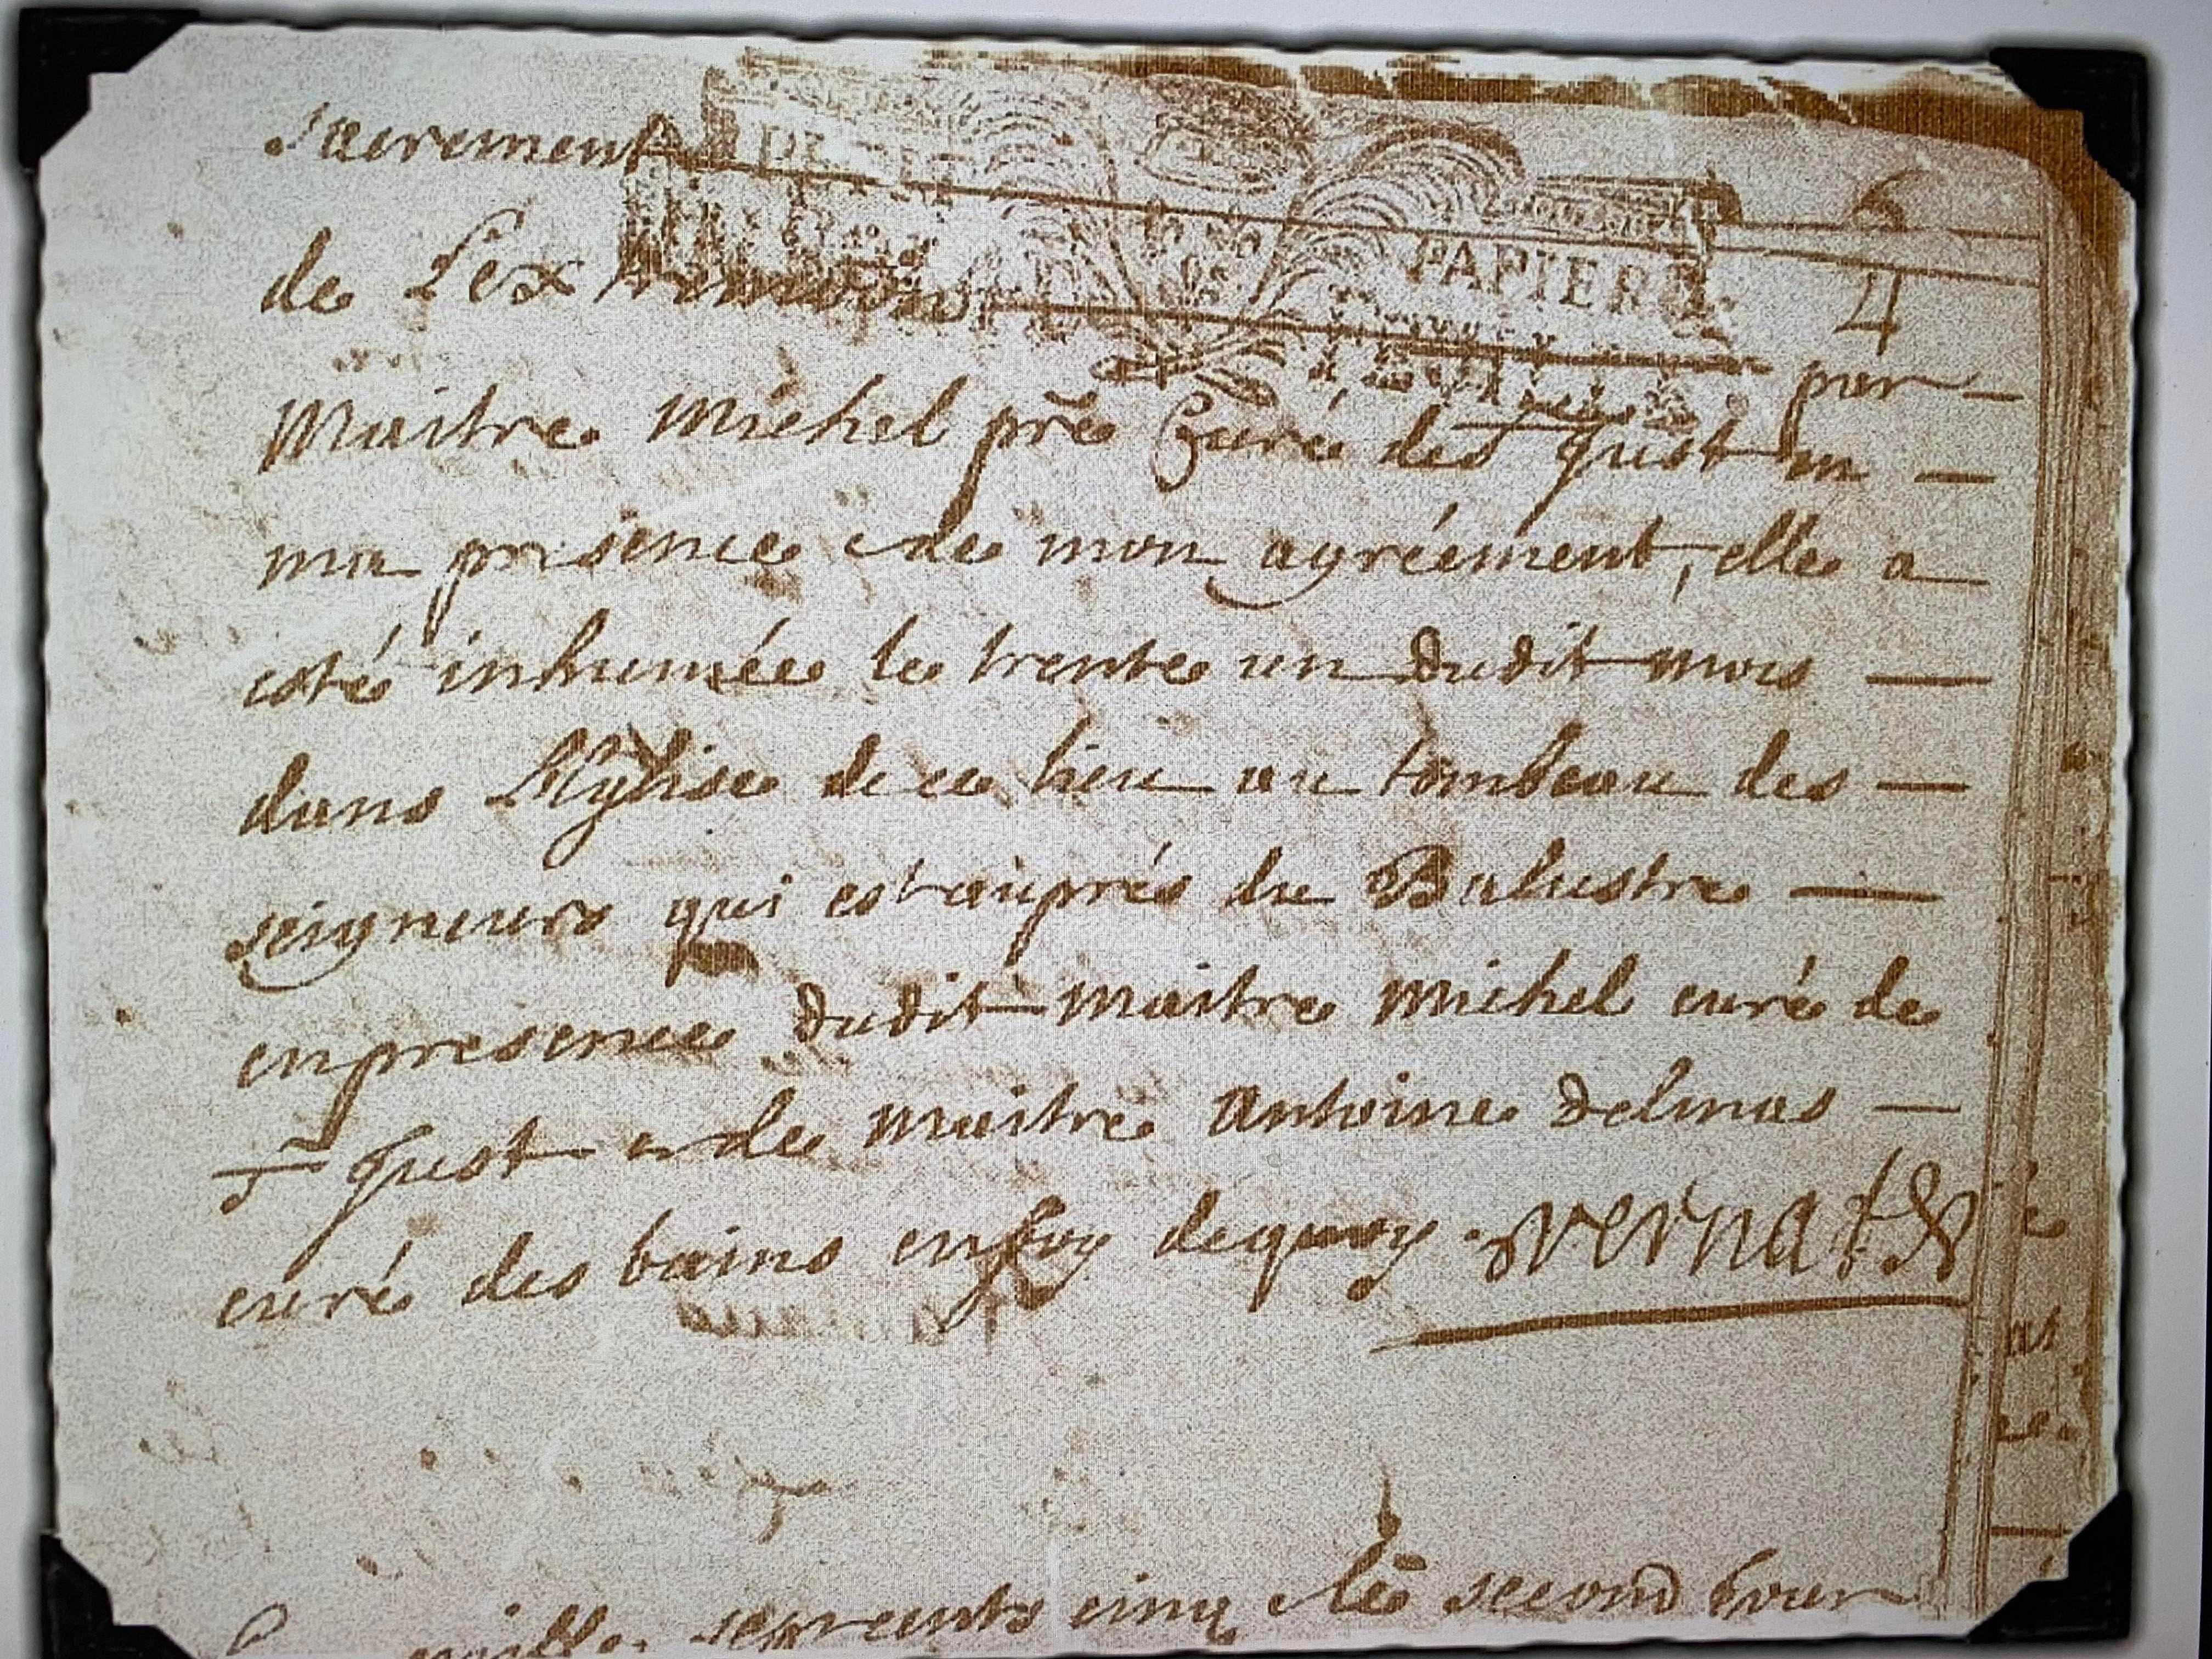 sacrement
DE
6
PAPIER
4
de Lextremonction par
Maitre Michel prẽ Curé de S^T Quist en
ma presence et de mon agréement, elle a
esté inhumée le trente un dudit mois
dans L'Eglise de ce lieu au tombeau des
seigneurs qui est aupres du Balustre
en presence dudit maitre michel curé de
S^T Quist et de maitre Antoine Delmas
curé des bains en foy dequoy .
mille septcents cinq et le second jour